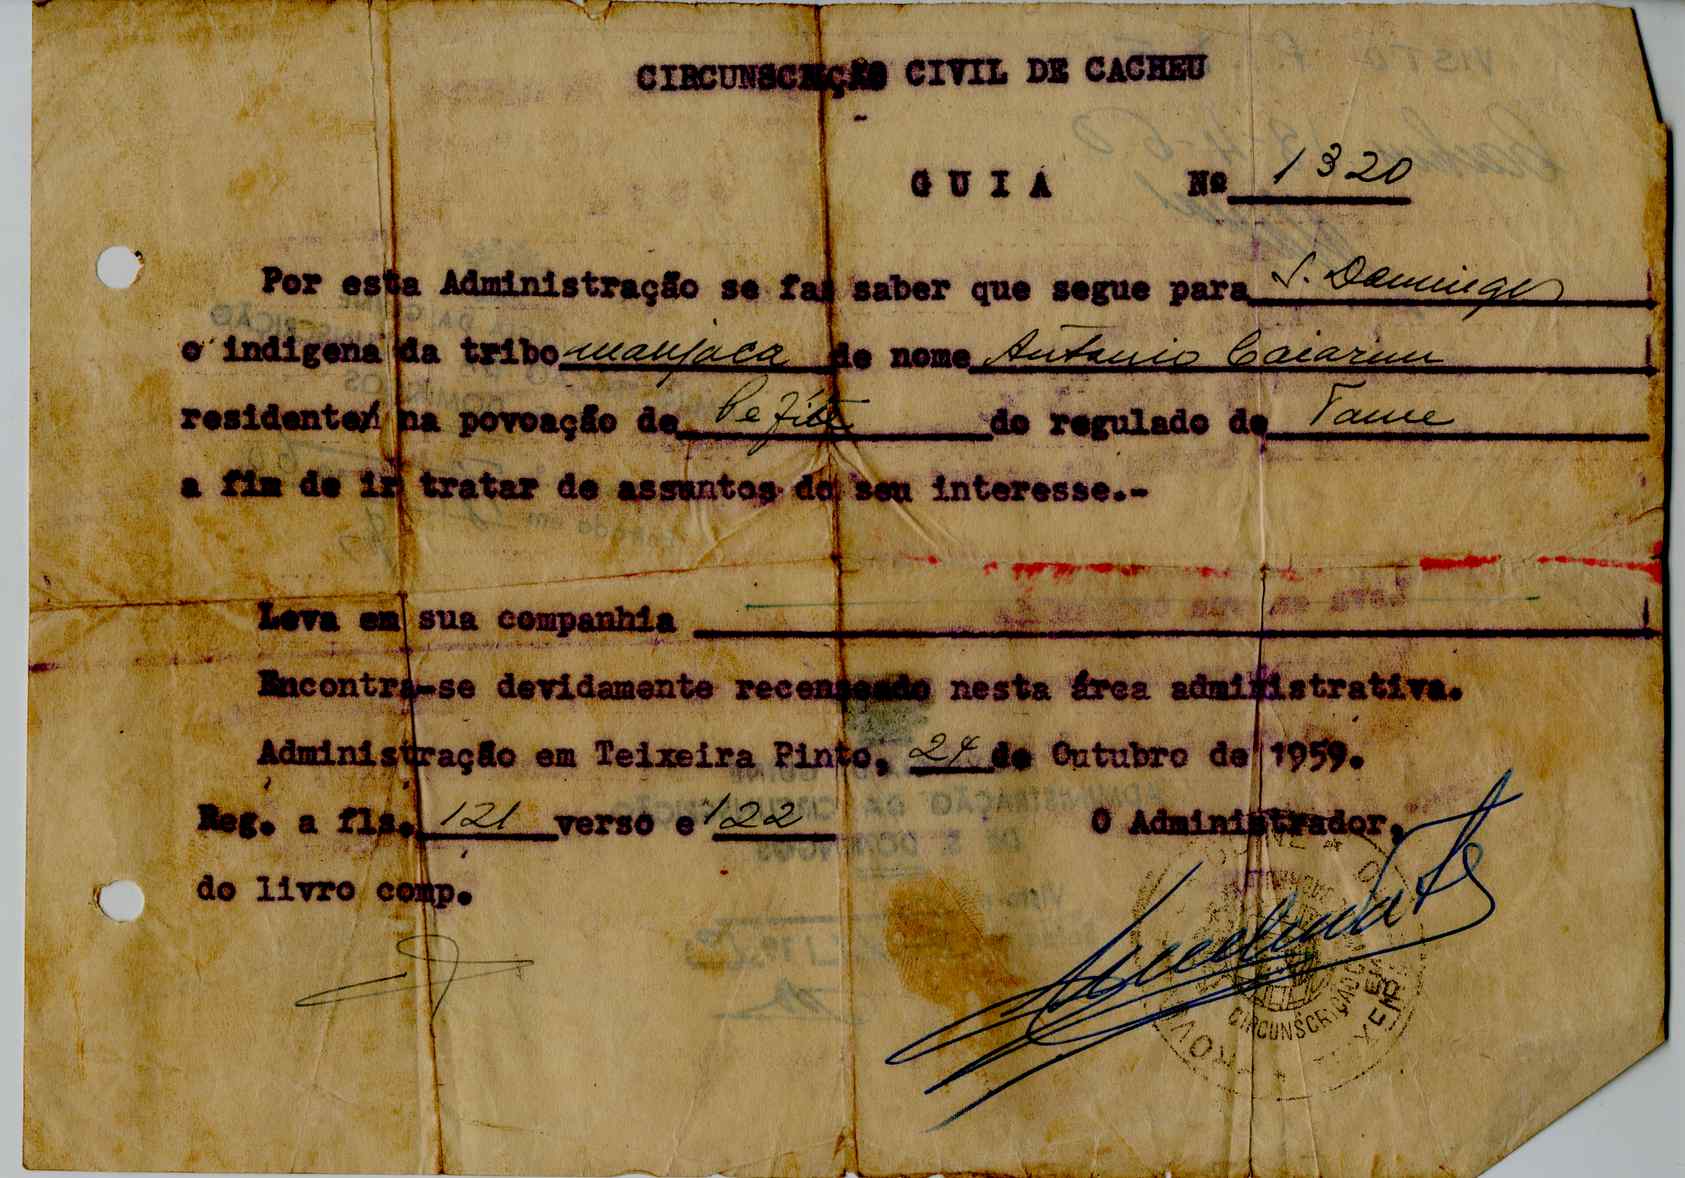 CIRCUNSCRIÇÃO CIVIL DE CACHEU
GUIA Nº 1320
Por esta Administração se faz saber que segue para S. Domingos
o indigena da tribo manjaca de nome Antonio
residente na povoação de do regulado de Tame
a fim de ir tratar de assuntos do seu interesse.-
Leva em sua companhia
Encontra-se devidamente recenseado nesta área administrativa.
Administração em Teixeira Pinto, 24 de Outubro de 1959.
Reg. a fls. 121 verso e 122 O Administrador,
do livro comp.
CIRCUNSCRIÇÃO